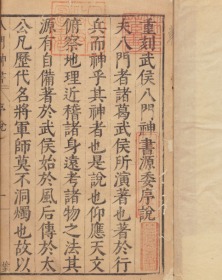 重刻武侯八門神書源委序說
夫八門者諸葛武侯所演著也著於行
兵而神乎其神者也是說也仰應天文
俯察地理近稽諸身遠考諸物之法其
源有自備著於武侯始於風后傳於太
公凡歷代名將軍師莫不洞燭也故以